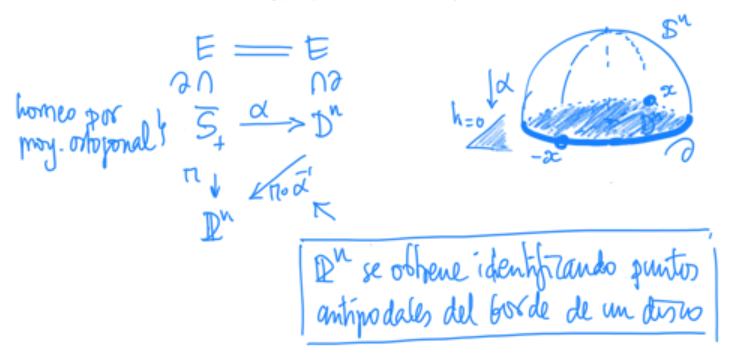 E = E
∂ ∩ ∩ ∂
homeo por
proy. ortogonal
S̄₊ α → Dⁿ
π ↓ π∘α⁻¹
ℙⁿ
𝕊ⁿ
↓ α
x
h=0
-x
∂
ℙⁿ se obtiene identificando puntos
antipodales del borde de un disco